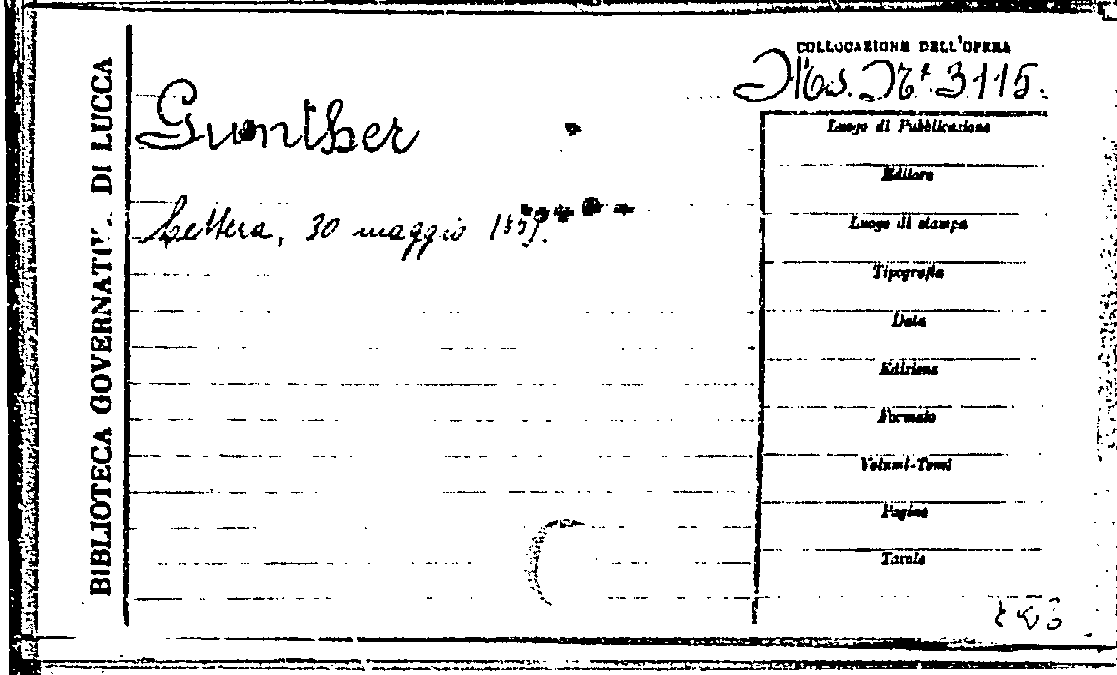 BIBLIOTECA GOVERNATIV. DI LUCCA
COLLOCAZIONE DELL'OPERA
Ms. N.º 3115.
Gunther
Lettera, 30 maggio
Luogo di Pubblicazione
Editore
Luogo di stampa
Tipografia
Data
Edizione
Formato
Volumi-Tomi
Pagine
Tavole